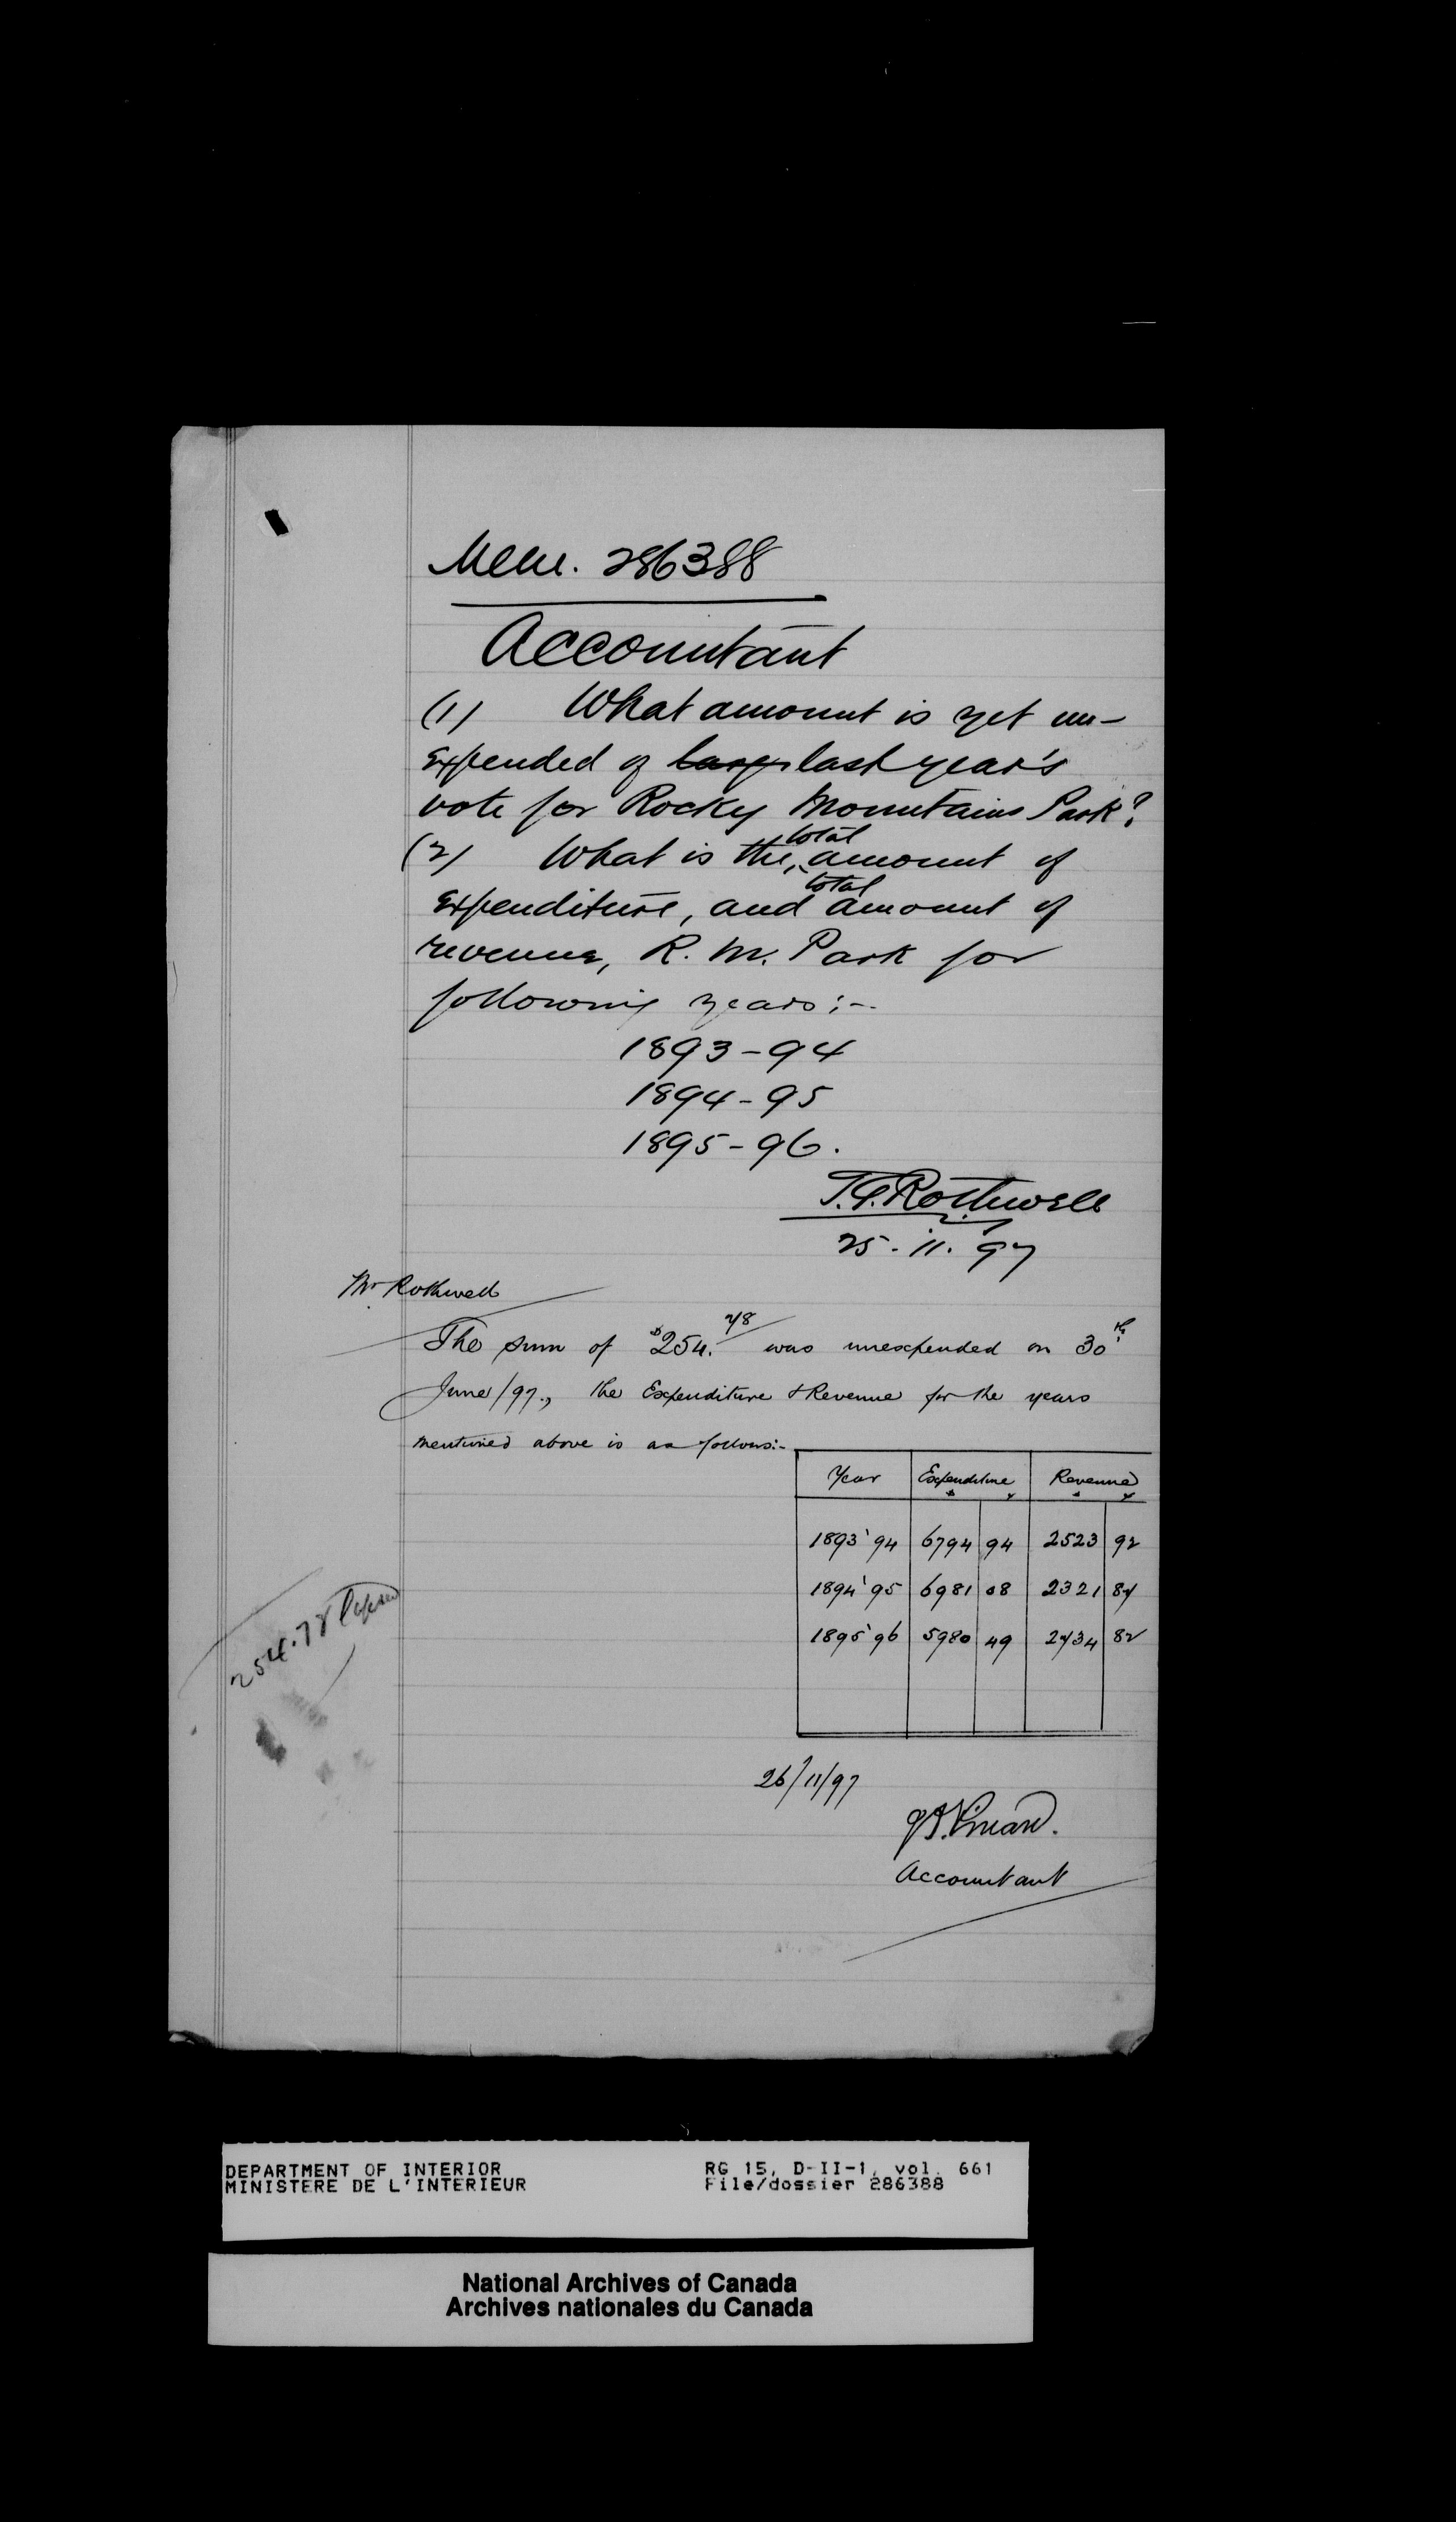 Mem. 286388
Accountant
(1) What amount is yet un-
expended of last year's
vote for Rocky Mountains Park?
(2) What is the total amount of
expenditure, and total amount of
revenue, R. M. Park for
following years:-
1893-94
1894-95
1895-96.
T.G. Rothwell
25. 11. 97
Mr Rothwell
The sum of $254.78 was unexpended on 30th
June/97., the Expenditure & Revenue for the years
mentioned above is as follows:-
Year Expenditure Revenue
1893'94 6794 94 2523 92
1894'95 6981 08 2321 87
1895'96 5980 49 2734 82
254.78 lapsed
26/11/97
Accountant
DEPARTMENT OF INTERIOR
MINISTERE DE L'INTERIEUR
RG 15, D-II-1, vol. 661
File/dossier 286388
National Archives of Canada
Archives nationales du Canada